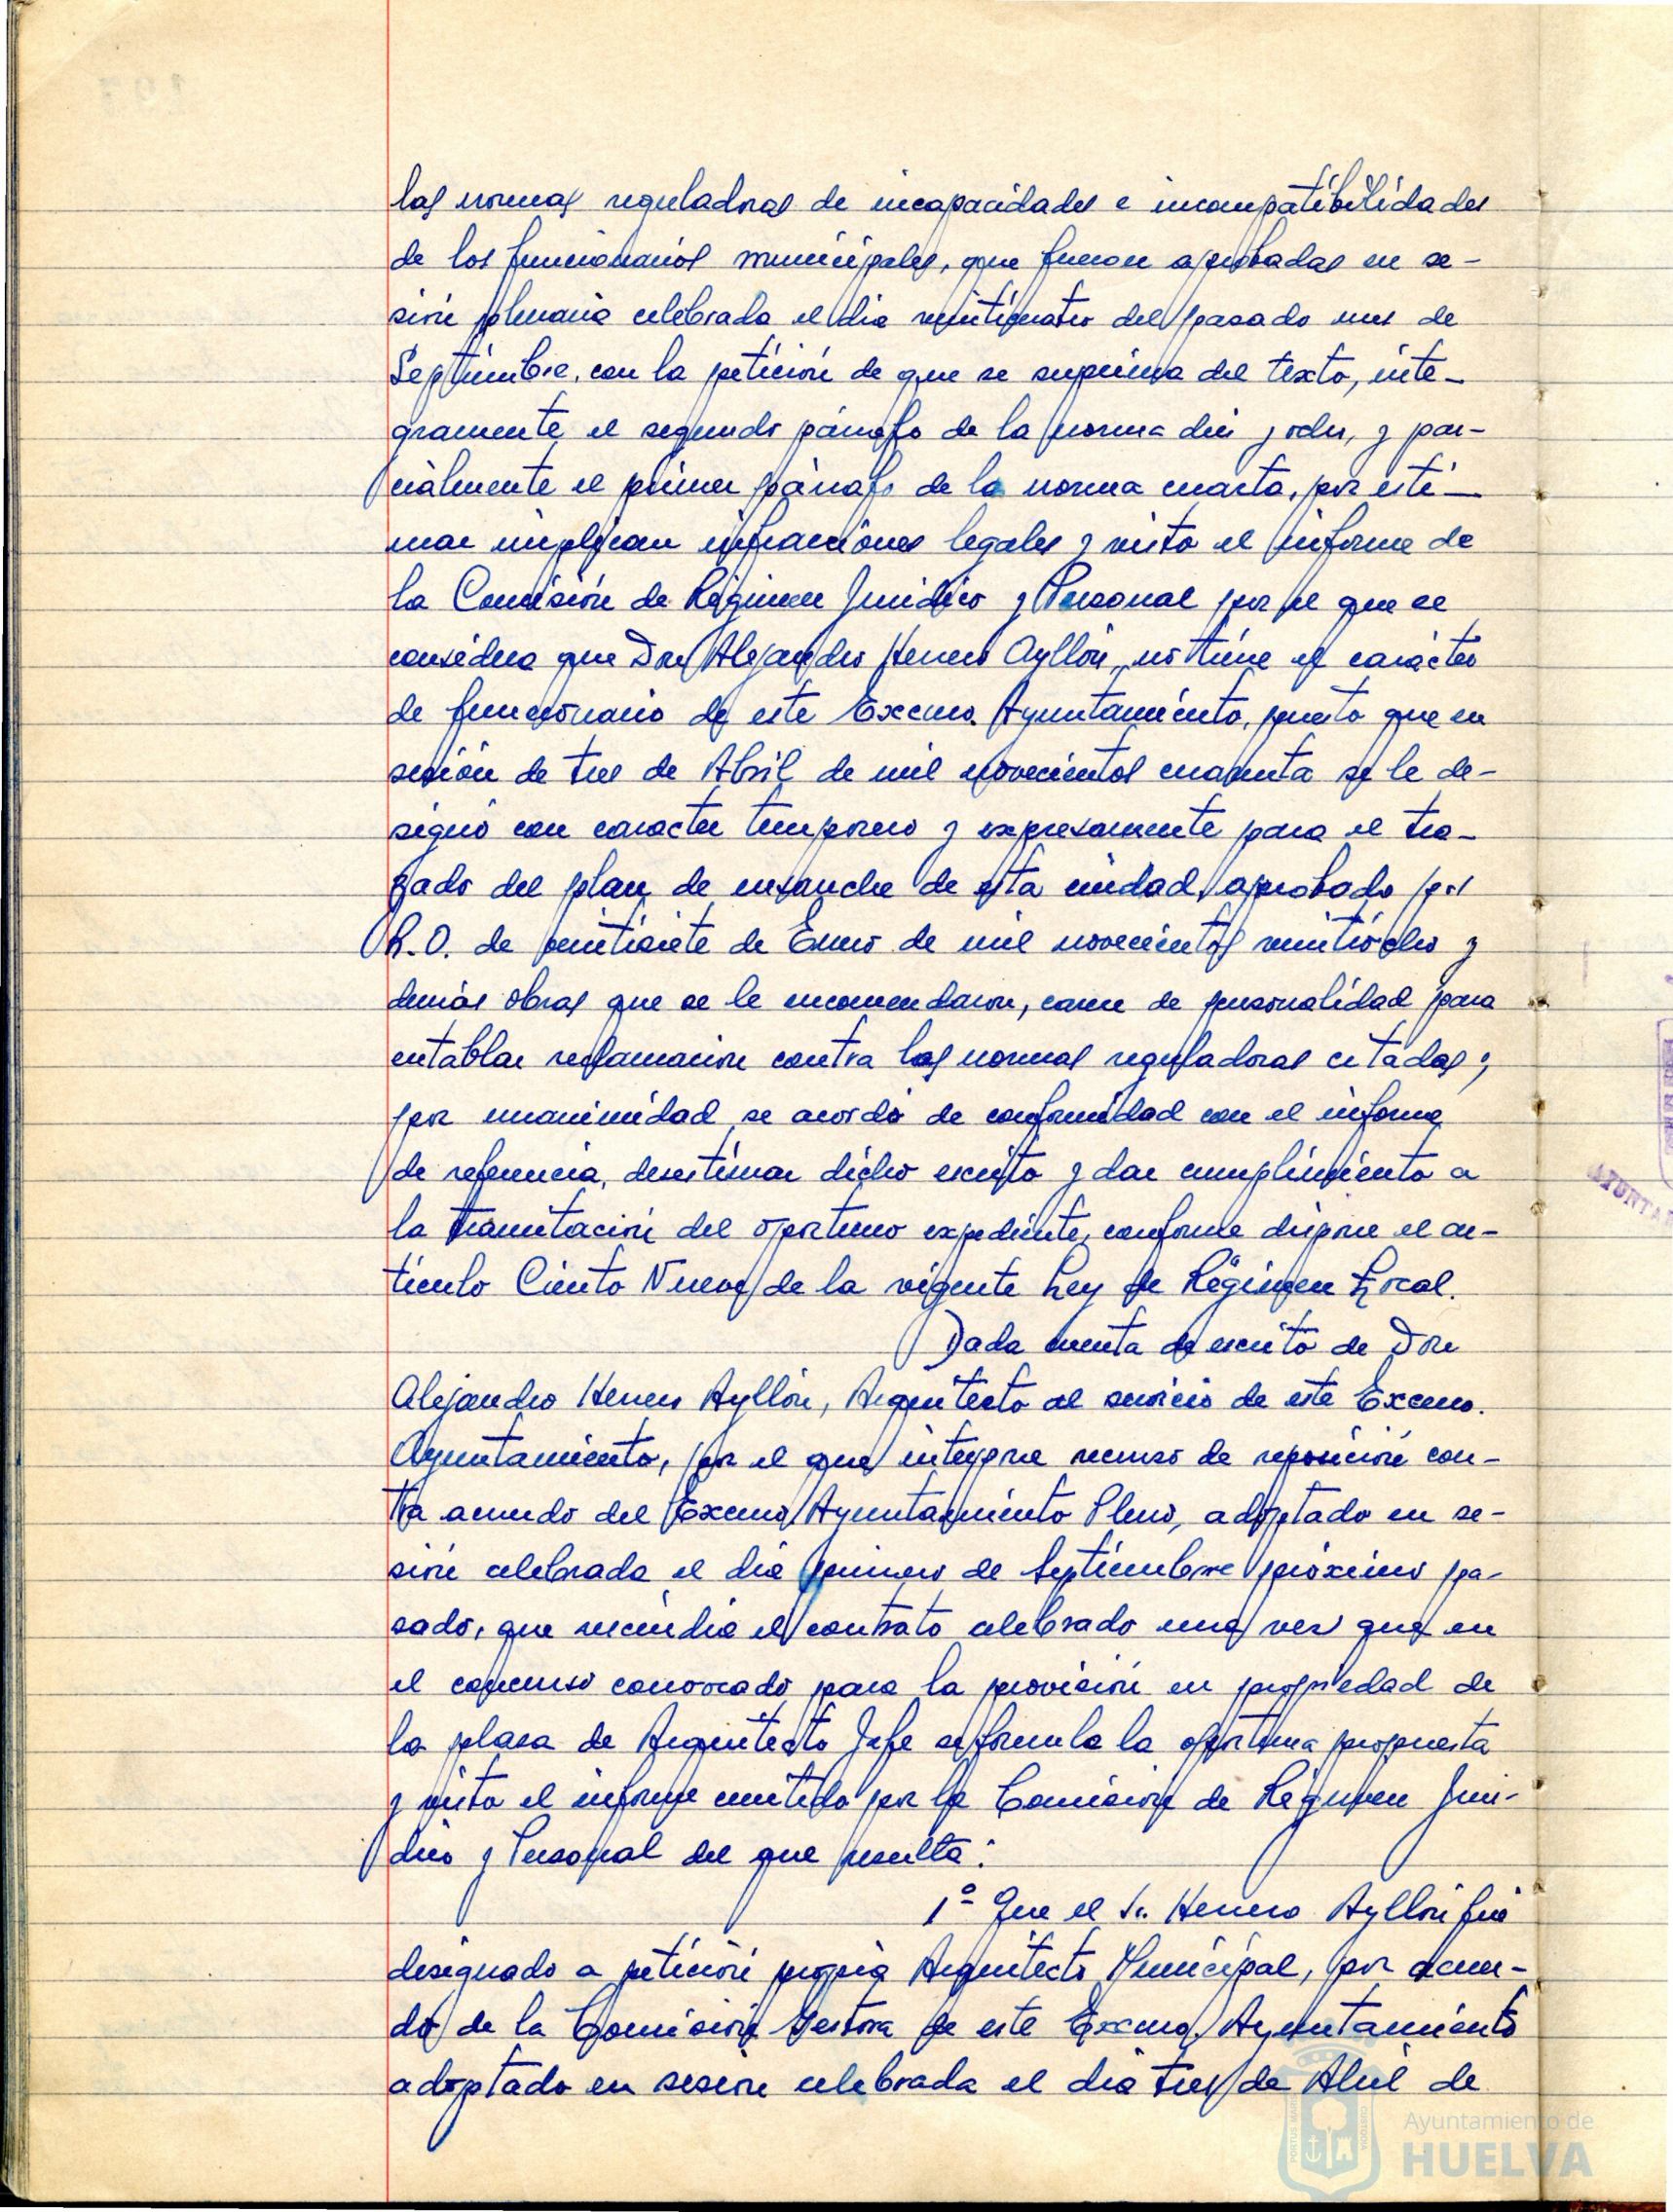 las normas reguladoras de incapacidades e incompatibilidades
de los funcionarios municipales, que fueron aprobadas en se-
sión plenaria celebrada el dia veintiquatro del pasado mes de
Septiembre, con la petición de que se suprima del texto, inte-
gramente el segundo párrafo de la norma diez y ocho, y par-
cialmente el primer párrafo de la norma cuarta, por esti-
mar implican infracciones legales y visto el informe de
la Comisión de Régimen Juridico y Personal por el que se
considera que Don Alejandro Herrero Ayllón, no tiene el carácter
de funcionario de este Excmo. Ayuntamiento, puesto que en
sesión de tres de Abril de mil novecientos cuarenta se le de-
signó con caracter temporero y expresamente para el tra-
zado del plan de ensanche de esta ciudad, aprobado por
R.O. de veintisiete de Enero de mil novecientos veintiocho y
demás obras que se le encomendaron, carece de personalidad para
entablar reclamacion contra las normas reguladoras citadas;
por unanimidad se acordó de conformidad con el informe
de referencia, desestimar dicho escrito y dar cumplimiento a
la tramitación del oportuno expediente, conforme dispone el ar-
ticulo Ciento Nueve de la vigente Ley de Régimen Local.
Dada cuenta de escrito de Don
Alejandro Herrero Ayllón, Arquitecto al servicio de este Excmo.
Ayuntamiento, por el que interpone recurso de reposición con-
tra acuerdo del Excmo Ayuntamiento Pleno, adoptado en se-
sión celebrada el dia primero de Septiembre próximo pa-
sado, que rescindia el contrato celebrado una vez que en
el concurso convocado para la provisión en propiedad de
la plaza de Arquitecto Jefe se formula la oportuna propuesta
y visto el informe emitido por la Comisión de Régimen Juri-
dico y Personal del que resulta:
1º Que el Sr. Herrero Ayllón fué
designado a petición propia Arquitecto Municipal, por acuer-
do de la Comisión Gestora de este Excmo. Ayuntamiento
adoptado en sesion celebrada el dia tres de Abril de
Ayuntamiento de
HUELVA